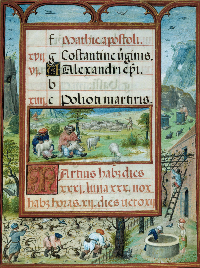 f Mathie apostoli.
xvii g Costantine v̄ginis.
vi A Alexandri ep̄i.
b
xiiii c Polioti martiris.
Martus habꝫ dies
xxxi, luna xxx, nox
habꝫ horas xii, dies vero xii